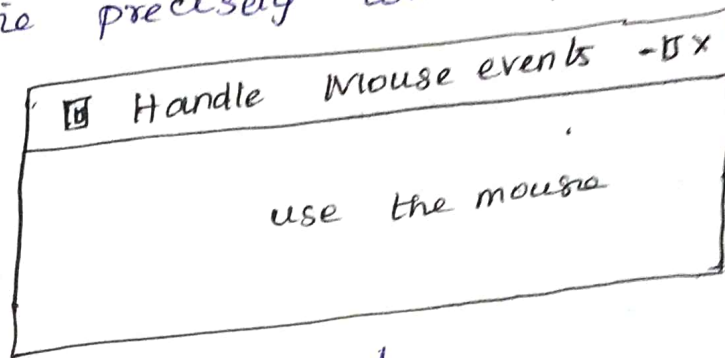 precisely
Handle Mouse events - x
use the mouse